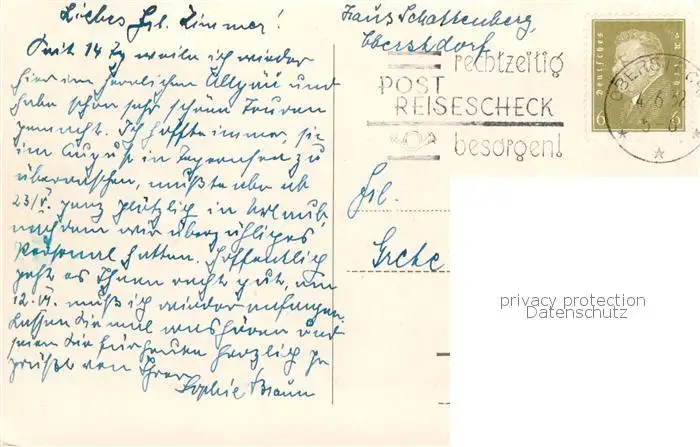 Liebes Frl. Zimmer!
Seit 14 Tg weile ich wieder
hier im herrlichen Allgäu und
habe schon sehr schöne Touren
gemacht. Ich hoffte immer, sie
im August in Tegernsee zu
überraschen, mußte aber ab
23/V. ganz plötzlich in Urlaub,
nachdem wir überzähliges
Personal hatten. Hoffentlich
geht es Ihnen recht gut, am
12. VI. muß ich wieder anfangen.
Lassen Sie mal was hören und
seien Sie für heute herzlich ge
grüßt von Ihrer
Sophie Braun
Haus Schattenberg,
Oberstdorf
rechtzeitig
POST
REISESCHECK
besorgen!
Deutsches
6
6
OBERSTDORF
4.6.32
Frl.
Grete
privacy protection
Datenschutz